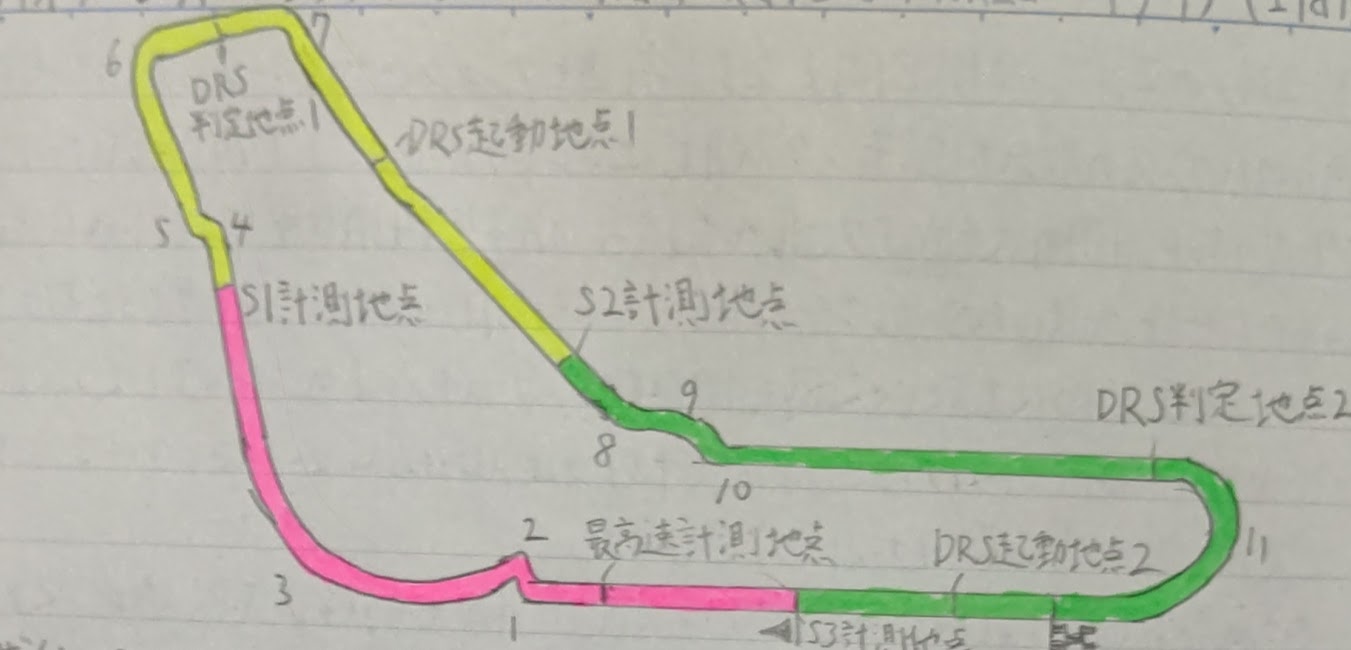 7
6
DRS
判定地点1
DRS起動地点1
5
4
S1計測地点
S2計測地点
9
DRS判定地点2
8
10
2
最高速計測地点
DRS起動地点2
11
3
1
S3計測地点